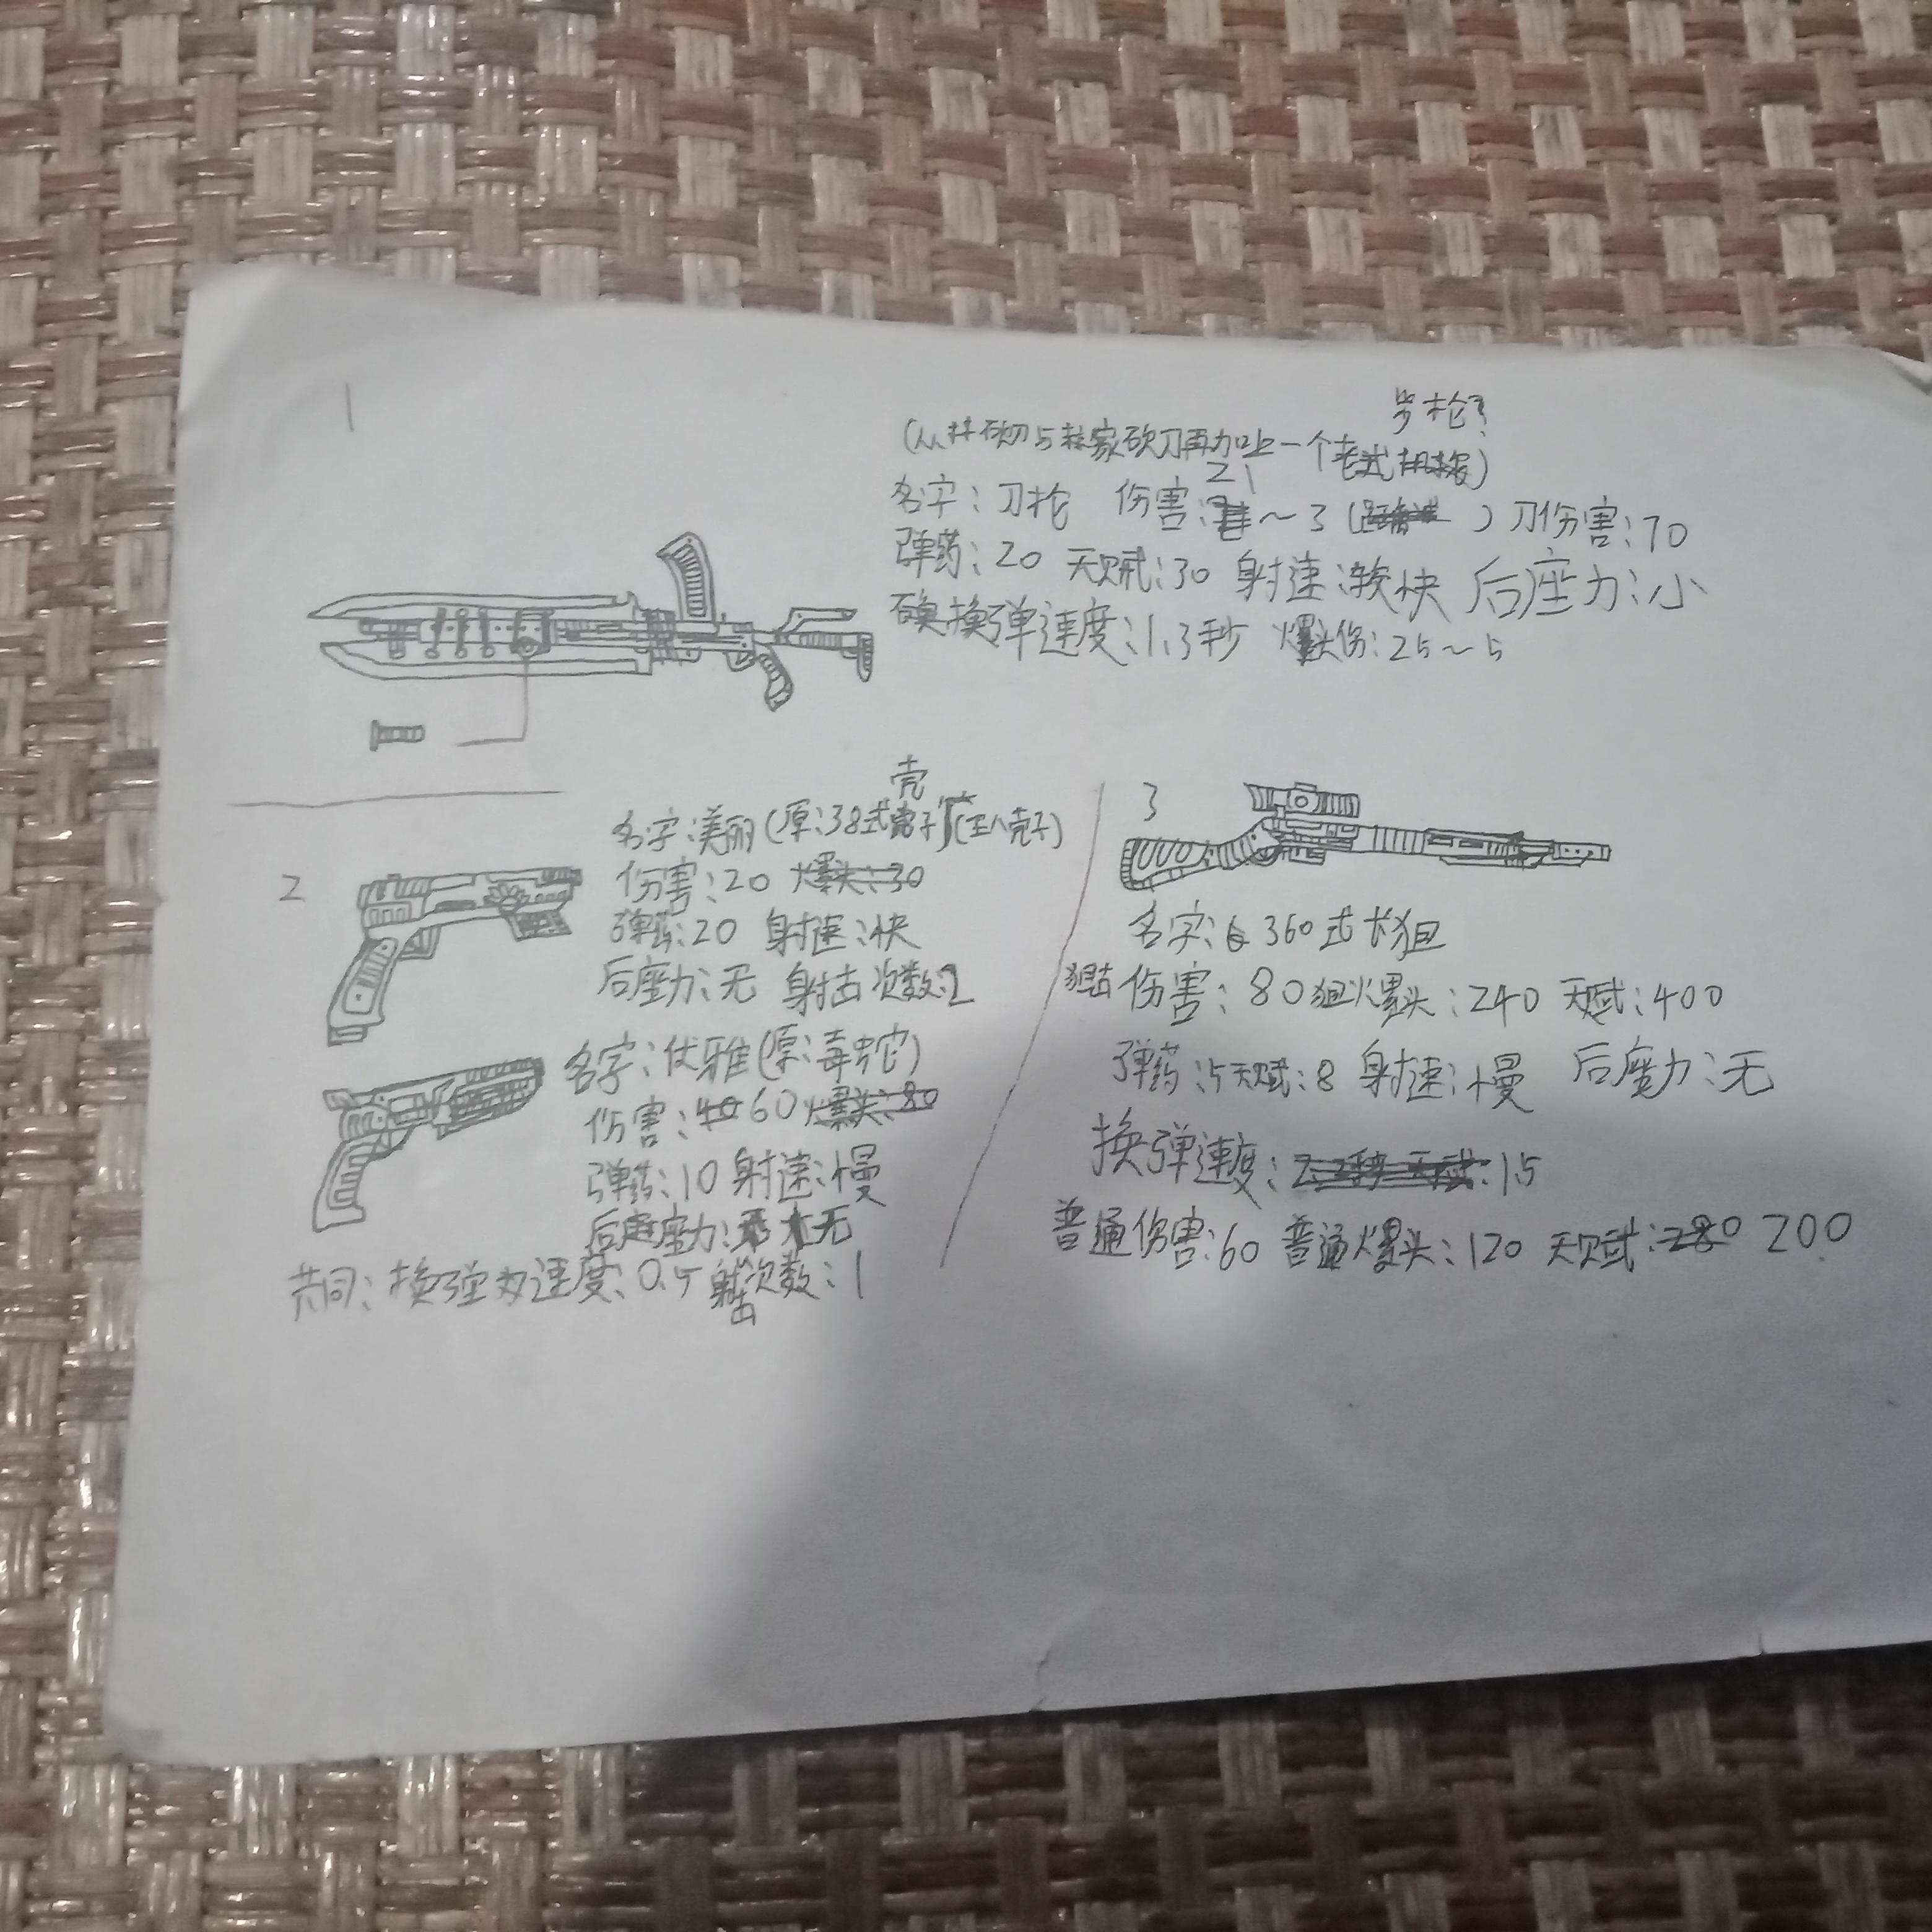 1
步枪?
(丛林砍刀与林家砍刀再加上一个老式)
21
名字:刀枪 伤害:~3 ( ) 刀伤害:70
弹药:20 天赋:30 射速:较快 后座力:小
换弹速度:1.3秒 爆头伤:25~5
2
壳
名字:美丽(原:38式盒子)(王八壳子)
伤害:20 爆头:30
弹药:20 射速:快
后座力:无 射击次数:2
名字:优雅(原:毒蛇)
伤害:40 60 爆头:80
弹药:10 射速:慢
后座力:无
共同:换弹速度:0.5 射击次数:1
3
名字:360式长狙
狙击伤害:80 狙爆头:240 天赋:400
弹药:5 天赋:8 射速:慢 后座力:无
换弹速度:2.2秒 天赋:1.5
普通伤害:60 普通爆头:120 天赋:280 200